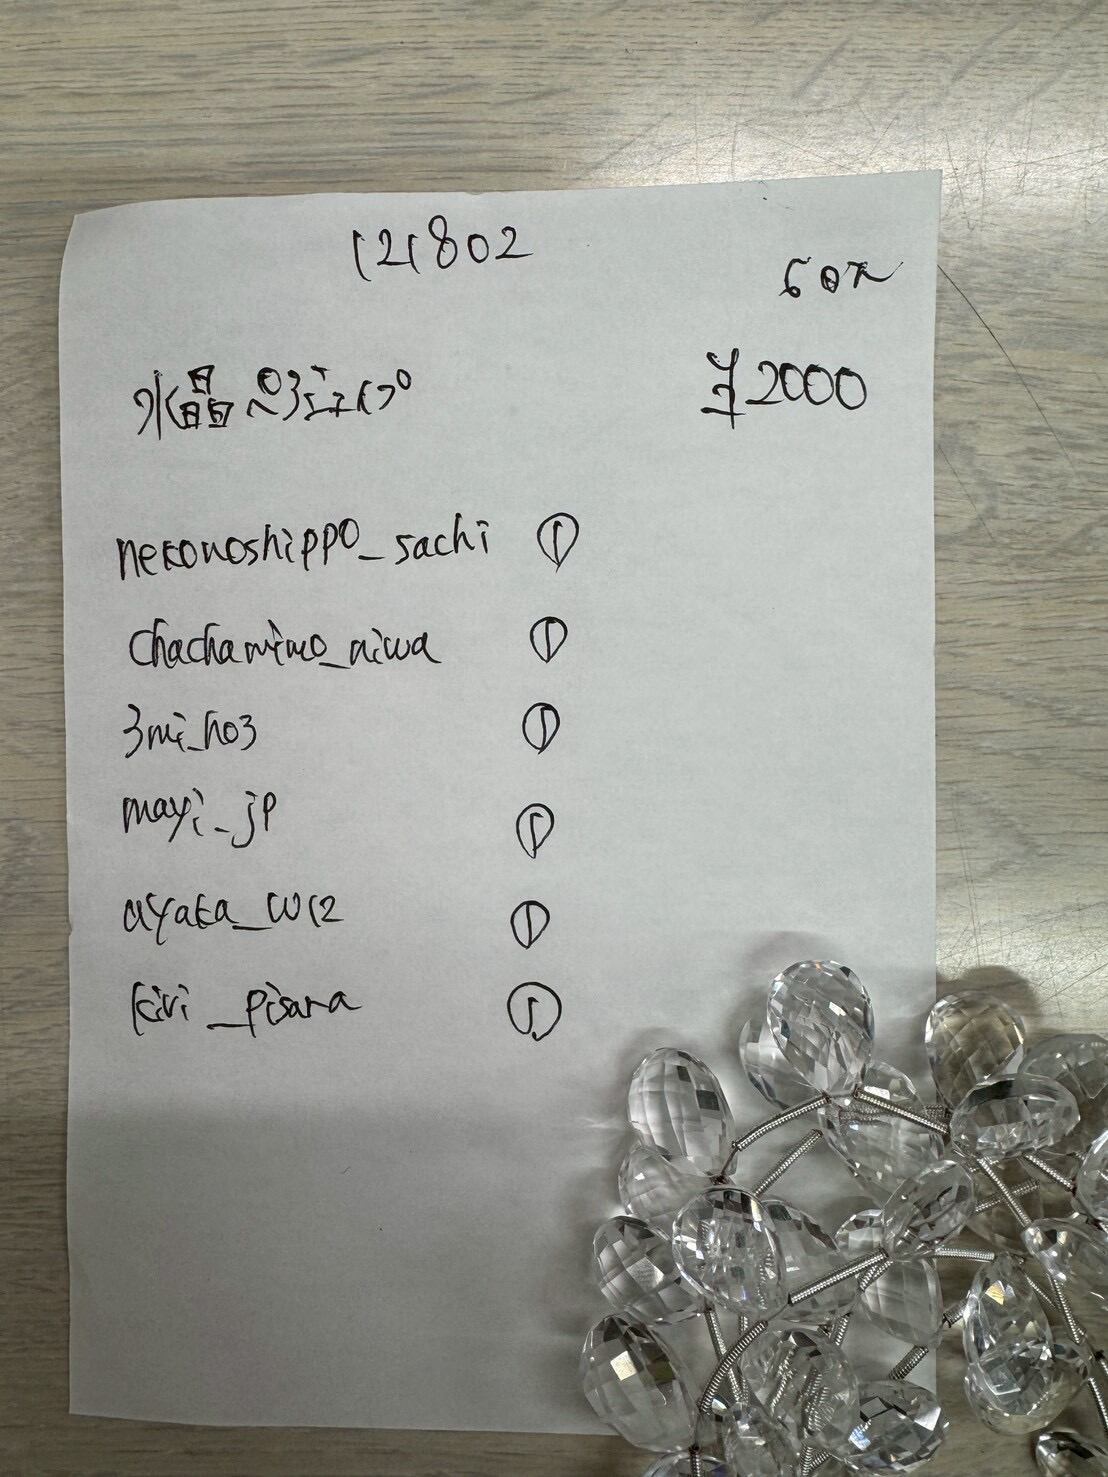 121802
60元
水晶 ¥2000
nekonoshippo_sachi ①
chachamimo_niwa ①
3mi_ho3 ①
mayi_jp ①
ayaka_w12 ①
kiri_pisara ①